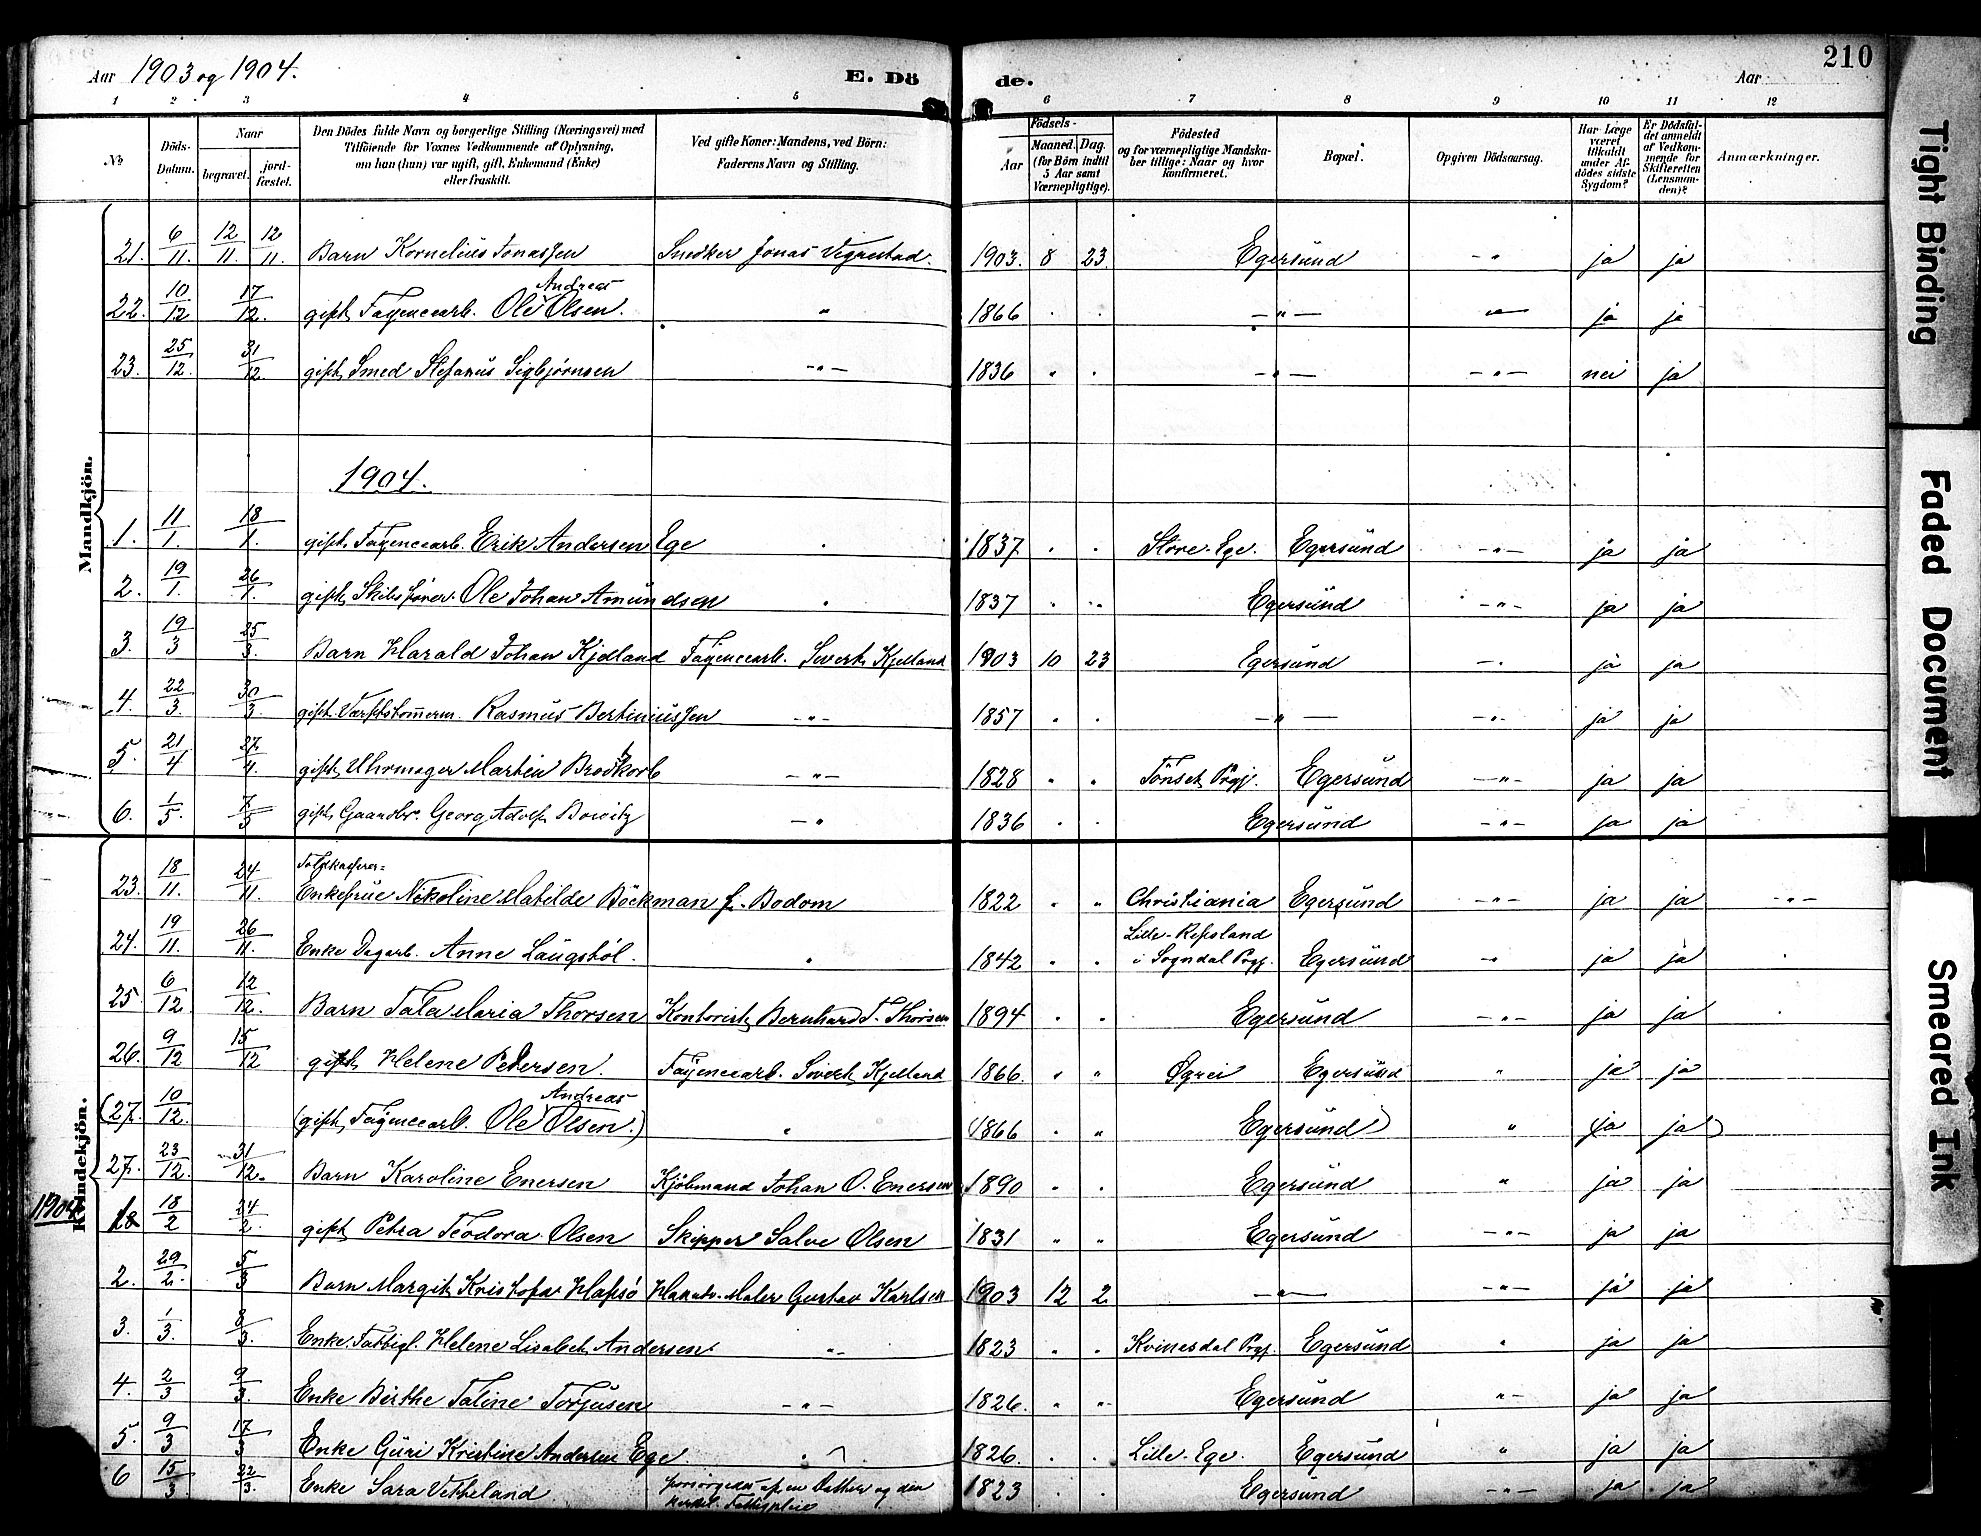 Aar 1903 og 1904. E. Dö de. Aar 210
1 2 3 4 5 6 7 8 9 10 11 12
No
Döds-Datum.
Naar
begravet.
jord-fæstet.
Den Dödes fulde Navn og borgerlige Stilling (Næringsvei) med
Tilföiende for Voxnes Vedkommende af Oplysning,
om han (hun) var ugift, gift, Enkemand (Enke)
eller fraskilt.
Ved gifte Koner: Mandens, ved Börn:
Faderens Navn og Stilling.
Födsels-
Aar
Maaned. Dag.
(for Börn indtil
5 Aar samt
Værnepligtige).
Födested
og for værnepligtige Mandska-
ber tillige: Naar og hvor
konfirmeret.
Bopæl.
Opgiven Dödsaarsag.
Har Læge
været
tilkaldt
under Af-
dödes sidste
Sygdom?
Er Dödsfal-
det anmeldt
af Vedkom-
mende for
Skifteretten
(Lensman-
den)?
Anmærkninger.
Mandkjön.
21. 6/11. 12/11. 12/11. Barn Kornelius Jonassen Snedker Jonas Vigrestad. 1903. 8 23. Egersund -"- ja ja
Andreas
22. 10/12 17/12. gift Fayencearb. Ole Olsen. " 1866 . . -"- " ja ja
23. 25/12. 31/12 gift Smed Stefanus Sigbjørnsen -"- 1836 " . -"- -"- nei ja
1904.
1. 11/1. 18/1. gift. Fayencearb. Erik Andersen Ege " 1837. " . Store-Ege. Egersund -"- ja ja
2. 19/1. 26/1. gift Skibsfører. Ole Johan Amundsen " 1837 " " Egersund -"- ja ja
3. 19/3 25/3. Barn Harald Johan Kjelland Fayencearb. Sivert Kjelland 1903 10 23 Egersund -" ja ja
4. 22/3. 30/3. gift Værftstømerm. Rasmus Bertiniussen -"- 1857 " . -"- -"- ja ja
5. 21/4 27/4. gift Uhrmager Martin Brodtkorb -"- 1828 " " Tönset Prgj. Egersund -"- ja ja
6. 1/5. 7/5 gift Gaardbr. Georg Adolf Bowitz -" 1836 . . Egersund -"- ja ja
Kvindekjön.
Toldkasserer=
23. 18/11. 24/11. Enkefrue Nikoline Matilde Böckman f. Bodom 1822 " " Christiania Egersund -"- ja ja -"-
Lille-Refsland
24. 19/11. 26/11. Enke Dagarb. Anne Laugstöl. " 1842 " " i Sogndal Prgj. Egersund -" ja ja
25. 6/12 12/12. Barn Tala Maria Thorsen Kontorist Bernhard T. Thorsen 1894 " " Egersund -"- ja ja
26. 9/12 15/12 gift Helene Petersen. Fayencearb. Sivert Kjelland 1866. " " Øgrei Egersund " ja ja
Andreas
(27. 10/12. (gift, Fayencearb. Ole Olsen.) " (1866 " " Egersund) " (ja ja)
27. 23/12. 31/12. Barn Karoline Enersen Kjöbmand Johan O. Enersen 1890 " . Egersund " ja ja
1904
1. 18/2 24/2. gift Petra Teodora Olsen Skipper Salve Olsen 1831 " " Egersund -"- ja ja
2. 29/2. 5/3 Barn Margit Kristofa Hafsö Haandv. Maler Gustav Karlsen 1903 12 2 -"- -"- ja ja
3. 1/3. 8/3. Enke. Fattigl. Helene Lisabet Andersen "- 1823 " . Kvinesdal Prgj. Egersund " ja ja
4. 2/3 9/3. Enke Birthe Taline Torjusen -"- 1826. " " Egersund "- ja ja
5. 9/3 17/3 Enke Guri Kristine Andersen Ege " 1826. . . Lille-Ege. Egersund " ja ja
6 15/3. 22/3. Enke Sara Vetteland forsörgedes af en Datter og den 1823 . . Egersund -"- ja ja
Fattigpleie
Tight Binding
Faded Document
Smeared Ink